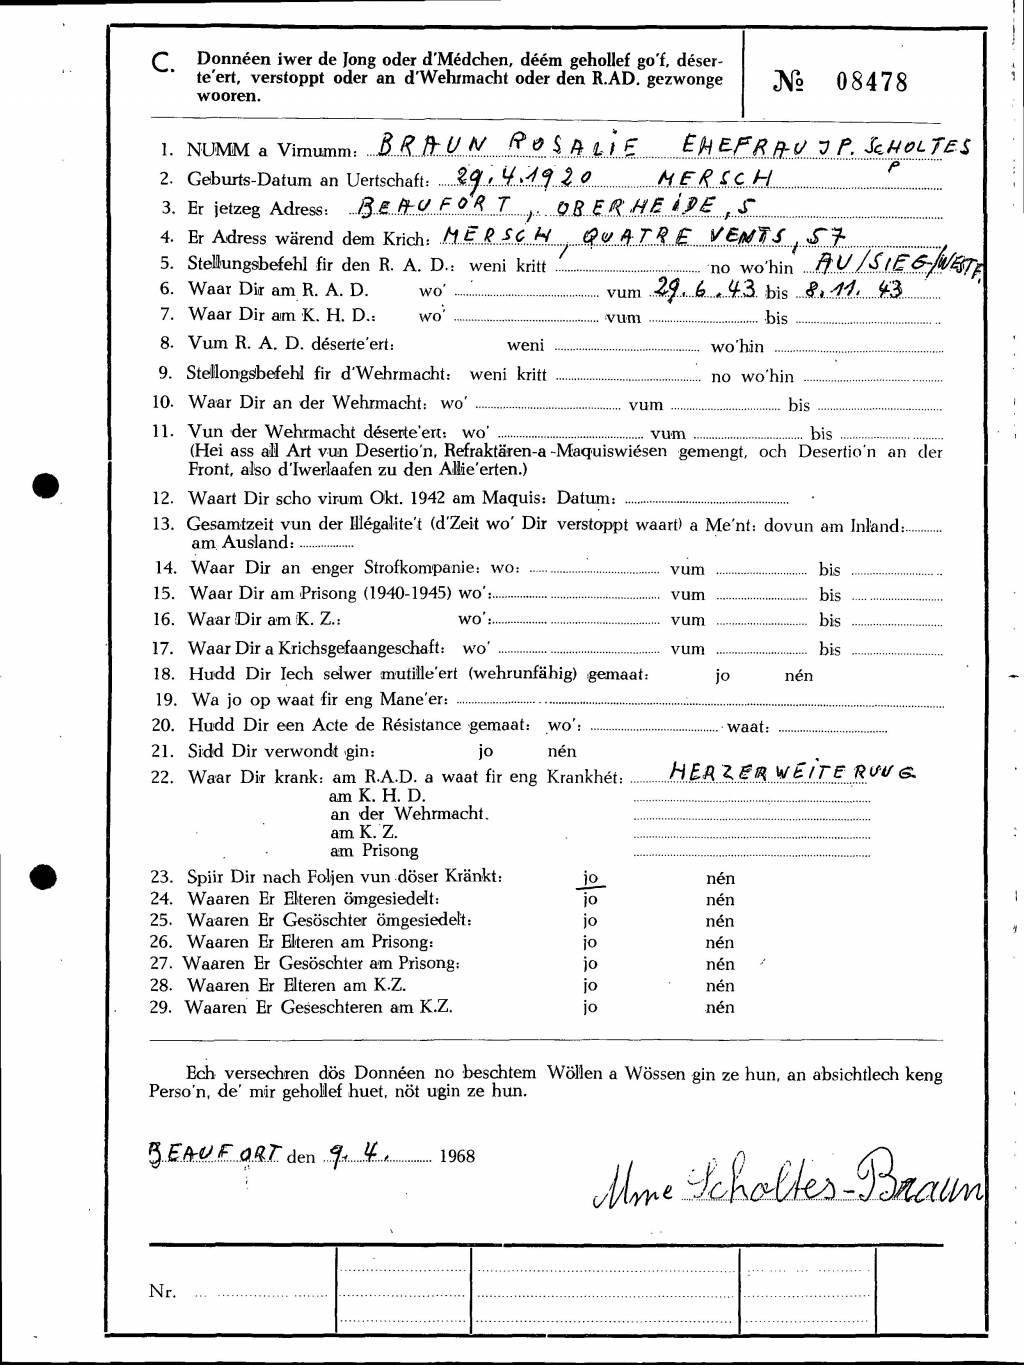 C. Donnéen iwer de Jong oder d'Médchen, déém gehollef go'f, déser-
te'ert, verstoppt oder an d'Wehrmacht oder den R.AD. gezwonge
wooren.
№ 08478
1. NUMM a Virnumm: BRAUN ROSALIE EHEFRAU JP. SCHOLTES
2. Geburts-Datum an Uertschaft: 29.4.1920 MERSCH
3. Er jetzeg Adress: BEAUFORT, OBERHEIDE, 5
4. Er Adress wärend dem Krich: MERSCH, QUATRE VENTS, 57
5. Stellungsbefehl fir den R. A. D.: weni kritt no wo'hin AU/SIEG/WESTF.
6. Waar Dir am R. A. D. wo' vum 29.6.43 bis 8.11.43
7. Waar Dir am K. H. D.: wo' vum bis
8. Vum R. A. D. déserte'ert: weni wo'hin
9. Stellongsbefehl fir d'Wehrmacht: weni kritt no wo'hin
10. Waar Dir an der Wehrmacht: wo' vum bis
11. Vun der Wehrmacht déserte'ert: wo' vum bis
(Hei ass all Art vun Desertio'n, Refraktären-a-Maquiswiésen gemengt, och Desertio'n an der
Front, also d'Iwerlaafen zu den Allie'erten.)
12. Waart Dir scho virum Okt. 1942 am Maquis: Datum:
13. Gesamtzeit vun der Illégalite't (d'Zeit wo' Dir verstoppt waart) a Me'nt: dovun am Inland:
am Ausland:
14. Waar Dir an enger Strofkompanie: wo: vum bis
15. Waar Dir am Prisong (1940-1945) wo': vum bis
16. Waar Dir am K. Z.: wo': vum bis
17. Waar Dir a Krichsgefaangeschaft: wo' vum bis
18. Hudd Dir Iech selwer mutille'ert (wehrunfähig) gemaat: jo nén
19. Wa jo op waat fir eng Mane'er:
20. Hudd Dir een Acte de Résistance gemaat: wo': waat:
21. Sidd Dir verwondt gin: jo nén
22. Waar Dir krank: am R.A.D. a waat fir eng Krankhét: HERZERWEITERUUG
am K. H. D.
an der Wehrmacht.
am K. Z.
am Prisong
23. Spiir Dir nach Foljen vun döser Kränkt: jo nén
24. Waaren Er Elteren ömgesiedelt: jo nén
25. Waaren Er Gesöschter ömgesiedelt: jo nén
26. Waaren Er Elteren am Prisong: jo nén
27. Waaren Er Gesöschter am Prisong: jo nén
28. Waaren Er Elteren am K.Z. jo nén
29. Waaren Er Geseschteren am K.Z. jo nén
Ech versechren dös Donnéen no beschtem Wöllen a Wössen gin ze hun, an absichtlech keng
Perso'n, de' mir gehollef huet, nöt ugin ze hun.
BEAUFORT den 9. 4. 1968
Mme Scholtes-Braun
Nr.